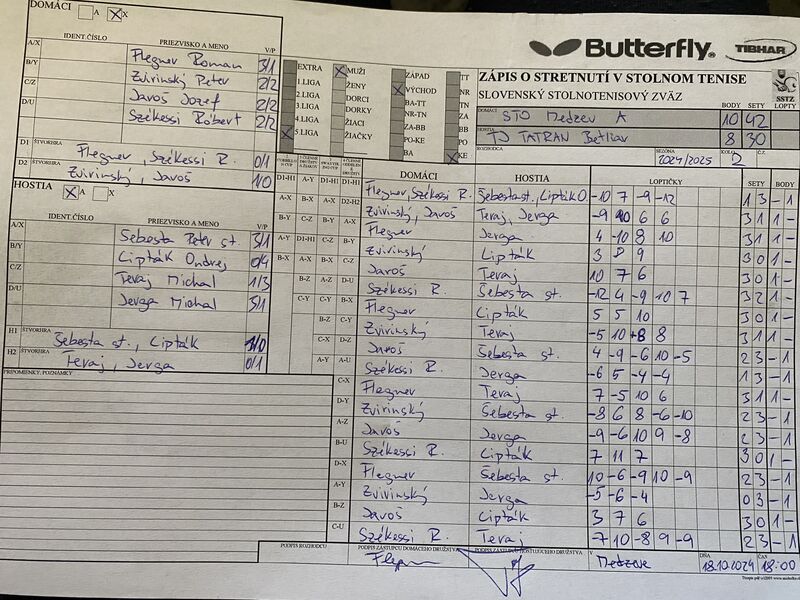 DOMÁCI A X
IDENT.ČÍSLO PRIEZVISKO A MENO V/P
A/X Flegner Roman 3/1
B/Y Zvirinský Peter 2/2
C/Z Javoš Jozef 2/2
D/U Székessi Róbert 2/2
D1 ŠTVORHRA Flegner, Székessi R. 0/1
D2 ŠTVORHRA Zvirinský, Javoš 1/0
HOSTIA A X
IDENT.ČÍSLO PRIEZVISKO A MENO V/P
A/X Šebesta Peter st. 3/1
B/Y Lipták Ondrej 0/4
C/Z Teraj Michal 1/3
D/U Jerga Michal 3/1
H1 ŠTVORHRA Šebesta st., Lipták 1/0
H2 ŠTVORHRA Teraj, Jerga 0/1
PRIPOMIENKY, POZNÁMKY
EXTRA MUŽI ZÁPAD TT
1.LIGA ŽENY VÝCHOD NR
2.LIGA DORCI BA-TT TN
3.LIGA DORKY NR-TN ZA
4.LIGA ŽIACI ZA-BB BB
5.LIGA ŽIAČKY PO-KE PO
BA KE
Butterfly TIBHAR
ZÁPIS O STRETNUTÍ V STOLNOM TENISE
SLOVENSKÝ STOLNOTENISOVÝ ZVÄZ
SSTZ
BODY SETY LOPTY
DOMÁCI STO Medzev A 10 42
HOSTIA TJ TATRAN Betliar 8 30
ROZHODCA SEZÓNA 2024/2025 KOLO 2 Č.Z.
DOMÁCI HOSTIA LOPTIČKY SETY BODY
D1-H1 A-Y D1-H1 D1-H1 Flegner, Székessi R. Šebesta st., Lipták O. -10 7 -9 -12 1 3 - 1
A-X B-X A-X D2-H2 Zvirinský, Javoš Teraj, Jerga -9 10 6 6 3 1 1 -
B-Y C-Z B-Y A-X Flegner Jerga 4 -10 8 10 3 1 1 -
A-Y D1-H1 C-Z B-Y Zvirinský Lipták 3 8 9 3 0 1 -
B-X A-X B-X C-Z Javoš Teraj 10 7 6 3 0 1 -
B-Z A-Z D-U Székessi R. Šebesta st. -12 4 -9 10 7 3 2 1 -
C-Y C-Y B-X Flegner Lipták 5 5 10 3 0 1 -
B-Z C-Y Zvirinský Teraj -5 10 8 8 3 1 1 -
C-X D-Z Javoš Šebesta st. 4 -9 -6 10 -5 2 3 - 1
A-Y A-U Székessi R. Jerga -6 5 -4 -4 1 3 - 1
C-X Flegner Teraj 7 -5 10 6 3 1 1 -
D-Y Zvirinský Šebesta st. -8 6 8 -6 -10 2 3 - 1
A-Z Javoš Jerga -9 -6 10 9 -8 2 3 - 1
B-U Székessi R. Lipták 7 11 7 3 0 1 -
D-X Flegner Šebesta st. 10 -6 -9 10 -9 2 3 - 1
A-Y Zvirinský Jerga -5 -6 -4 0 3 - 1
B-Z Javoš Lipták 3 7 6 3 0 1 -
C-U Székessi R. Teraj -7 10 -8 9 -9 2 3 - 1
PODPIS ROZHODCU PODPIS ZÁSTUPCU DOMÁCEHO DRUŽSTVA PODPIS ZÁSTUPCU HOSŤUJÚCEHO DRUŽSTVA V Medzeve DŇA 18.10.2024 ČAS 18:00